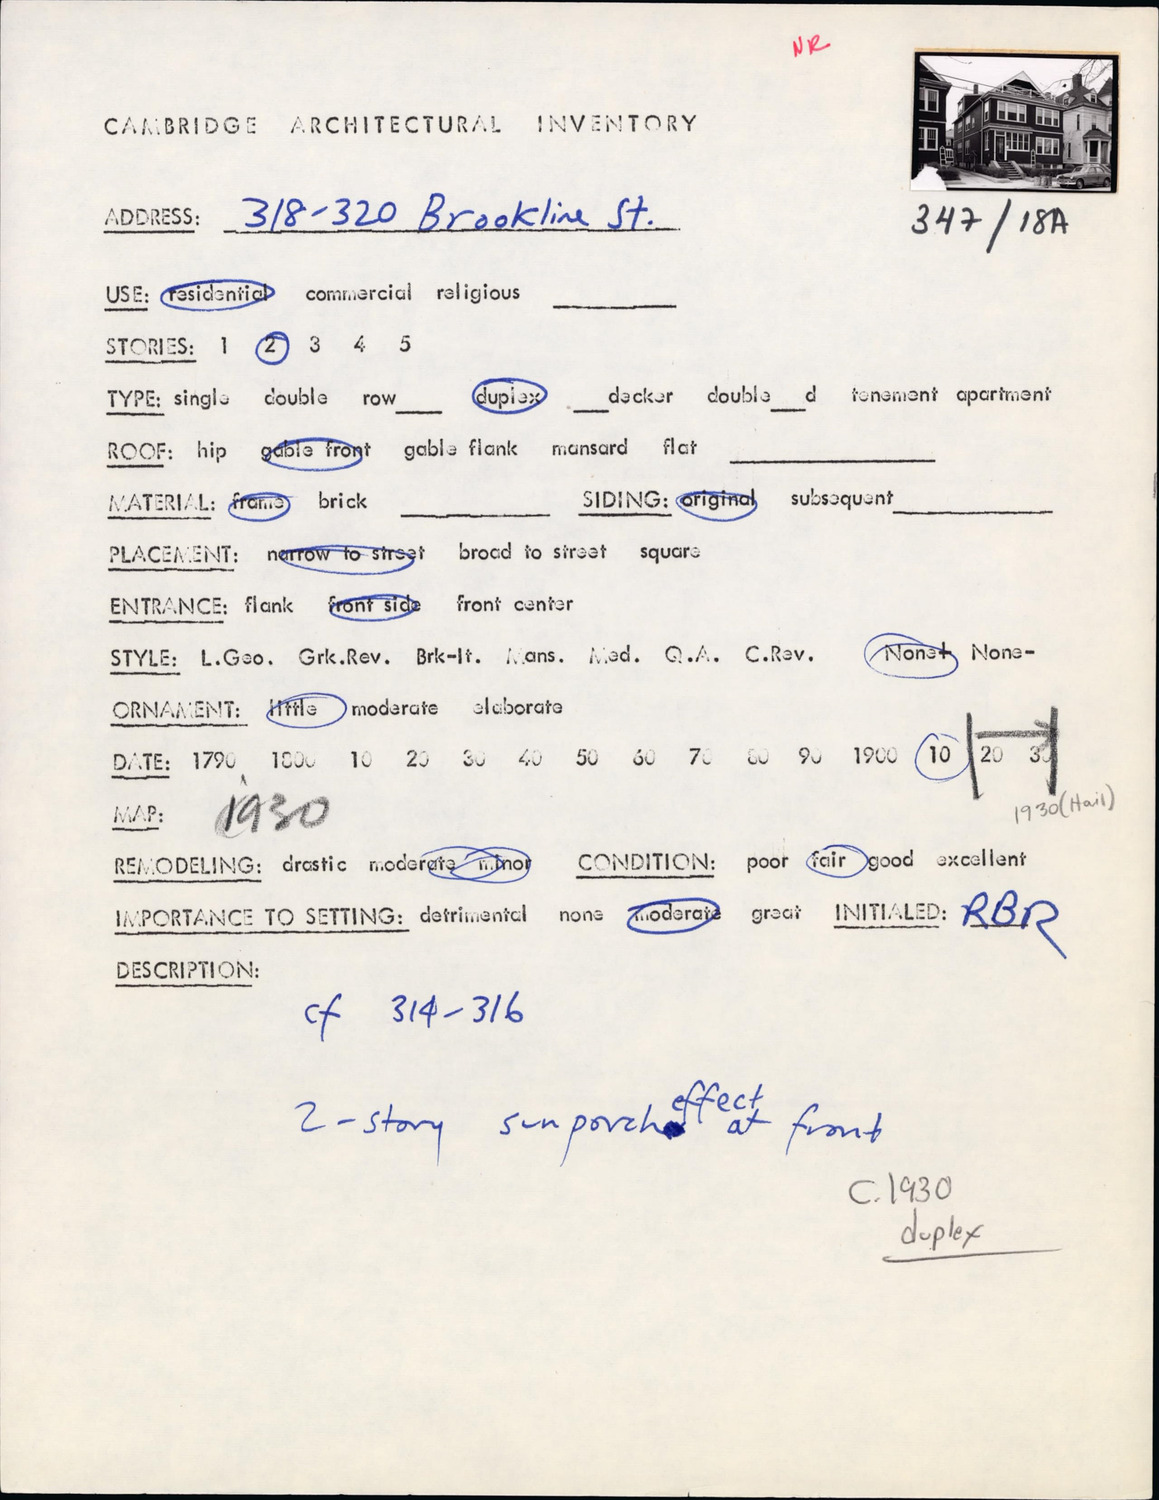 NR
CAMBRIDGE ARCHITECTURAL INVENTORY
ADDRESS: 318-320 Brookline St.
347/18A
USE: residential commercial religious
STORIES: 1 2 3 4 5
TYPE: single double row___ duplex ___decker double___d tenement apartment
ROOF: hip gable front gable flank mansard flat
MATERIAL: frame brick SIDING: original subsequent
PLACEMENT: narrow to street broad to street square
ENTRANCE: flank front side front center
STYLE: L.Geo. Grk.Rev. Brk-It. Mans. Med. Q.A. C.Rev. None+ None-
ORNAMENT: little moderate elaborate
DATE: 1790 1800 10 20 30 40 50 60 70 80 90 1900 10 20 30
MAP: 1930
1930 (Hail)
REMODELING: drastic moderate minor CONDITION: poor fair good excellent
IMPORTANCE TO SETTING: detrimental none moderate great INITIALED: RBR
DESCRIPTION:
cf 314-316
2-story sunporch effect at front
C.1930
duplex